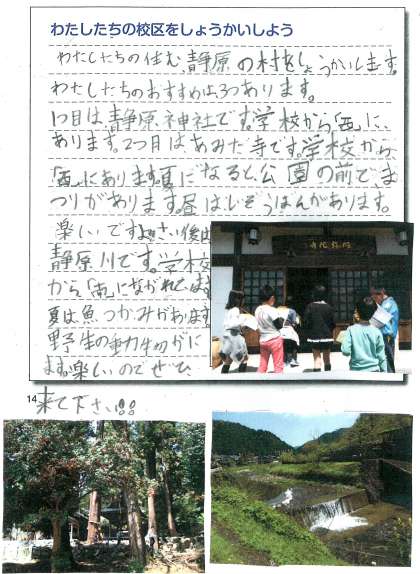 わたしたちの校区をしょうかいしよう
わたしたちの住む、静原の村をしょうかいします。
わたしたちのおすすめは3つあります。
1つ目は静原神社です。学校から「西」に、
あります。2つ目はあみだ寺です。学校から
「西」にあります。夏になると、公園の前でま
つりがあります。昼はじぞうぼんがあります。
楽しいですよ。さい後は
静原川です。学校
から「南」にながれています。
夏は魚つかみがあります。
野生の動物がに
ます。楽しいのでぜひ、
14
来て下さい!!